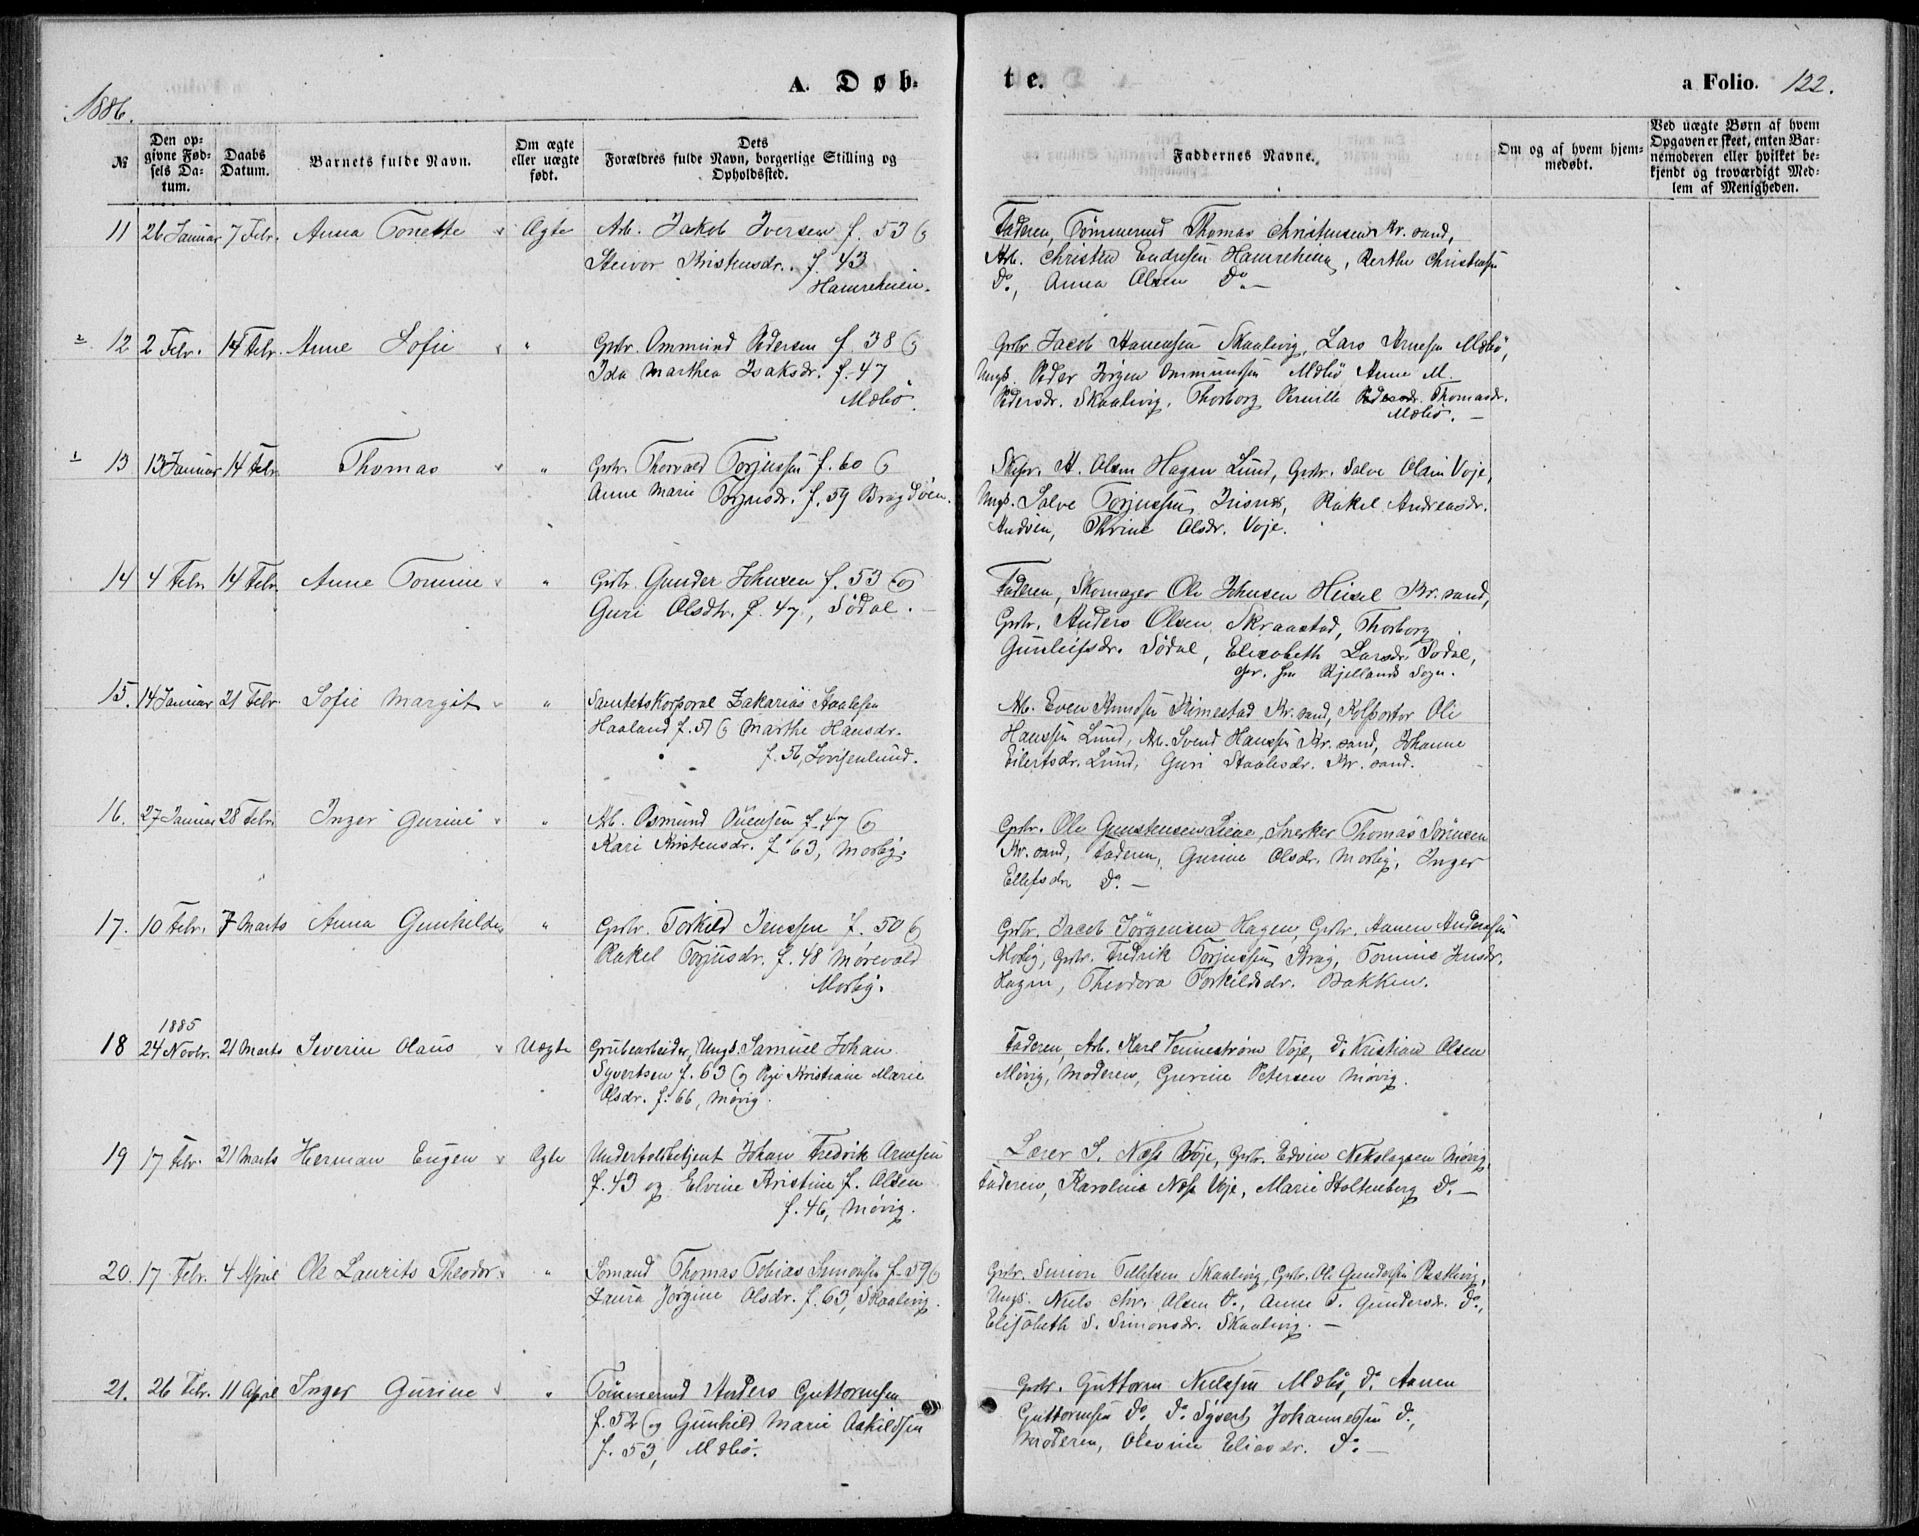 1886.
A. Døb-
te.
a Folio. 122.
№
Den op-
givne Fød-
sels Da-
tum.
Daabs
Datum.
Barnets fulde Navn.
Om ægte
eller uægte
født.
Dets
Forældres fulde Navn, borgerlige Stilling og
Opholdssted.
Faddernes Navne.
Om og af hvem hjem-
medøbt.
Ved uægte Børn af hvem
Opgaven er skeet, enten Bar-
nemoderen eller hvilket be-
kjendt og troværdigt Med-
lem af Menigheden.
11 26 Januar 7 Febr. Anna Tonette Ægte Arb. Jakob Iversen f. 53 og
Steivor Kristensdr. f. 43
Hamreheien.
Faderen, Tømmermd Thomas Christensen Kr.sand,
Arb. Christen Endresen Hamreheien, Berthe Christensen
Do, Anna Olsen Do. —
2 12 2 Febr. 14 Febr. Anne Sofie " Grbr. Ommund Pedersen f. 38 og
Ida Marthea Isaksdr. f. 47
Mæbø.
Grbr. Jacob Hanensen Skaalevig, Lars Arnesen Mæbø,
Ungk. Peder Jørgen Ommundsen Mæbø Anne M.
Pedersdr. Skaalevig, Thorborg Pernille Thomasdr.
Mæbø. —
1 13 13 Januar 14 Febr. Thomas " Grbr. Thorvald Torjussen f. 60 og
Anne Marie Torjusdr. f. 59 Bragdøen.
Skpr. A. Olsen Hagen Lund, Grbr. Salve Olsen Voje,
Ungk. Salve Torjussen, Rakel Andreasdr.
Andøen, Thrine Olsdr. Voje.
14 4 Febr. 14 Febr. Anne Tomine " Grbr. Gunder Johnsen f. 53 og
Guri Olsdtr. f. 47, Sødal. —
Faderen, Skomager Ole Johnsen Heisel Kr.sand,
Grbr. Anders Olsen Skraastad, Thorborg
Gunleifsdr. Sødal, Elisabeth Larsdr. Sødal,
Kjellands Sogn.
15. 14 Januar 21 Febr. Sofie Margit " Sanitetskorporal Zakarias Staalesen
Haaland f. 51 og Marthe Hansdr.
f. 56, Lovisenlund.
Arb. Even Kimestad Kr.sand, Kolportør Ole
Hanssen Lund, Arb. Svend Hanssen Kr.sand, Johanne
Eilertsdr. Lund, Guri Staalesdr. Kr.sand.
16. 27 Januar 28 Febr. Inger Gurine " Arb. Osmund f. 47 og
Kari Kristensdr. f. 63, Mosby.
Grbr. Ole Gunstensen Liene, Snerker Thomas Sørensen
Kr.sand, Faderen, Gurine Olsdr. Mosby, Inger
Ellefsdr. Do. —
17. 10 Febr. 7 Marts Anna Gunhilde " Grbr. Torkild Jenssen f. 50 og
Rakel Torjusdr. f. 48 Mørevald
Mosby.
Grbr. Jacob Jørgensen Hagen, Grbr. Aanen Anderssen
Mosby, Grbr. Fredrik Torjussen Krag, Tomine Jensdr.
Hagen, Theodora Torkildsdr. Bakken.
1885
18 24 Novbr. 21 Marts Severin Olaus Uægte Grubearbeider, Ungk. Samuel Johan
Syvertsen f. 63 og Pige Kristiane Marie
Olsdr. f. 66, Møvig.
Faderen, Arb. Karl Vennestrøm Voje, Do Kristian Olsen
Møvig, Moderen, Gurine Petersen Møvig.
19 17 Febr. 21 Marts Herman Eugen Ægte Undertoldbetjent Johan Fredrik Arnesen
f. 43 og Elvine Kristine f. Olsen
f. 46, Møvig.
Lærer S. Næss Voje, Grbr. Edvin Møvig,
Faderen, Karoline Næss Voje, Marie Stoltenberg Do. —
20. 17 Febr. 4 April Ole Laurits Theodor " Sømand Thomas Tobias Simonsen f. 59 og
Laura Jørgine Olsdr. f. 63, Skaalevig.
Grbr. Simon Tellefsen Skaalevig, Grbr. Ole Gundersen,
Ungk. Niels Chr. Olsen Do., Anne T. Gundersdr. Do,
Elisabeth S. Simonsdr. Skaalevig. —
21. 26 Febr. 11 April Inger Gurine " Tømmermd Anders Guttormsen
f. 52 og Gunhild Marie Askildsen
f. 53, Mæbø.
Grbr. Guttorm Nielssen Mæbø, Do. Aanen
Guttormsen Do, Do. Syvert Johannessen Do,
Moderen, Olevine Eliasdr. Do. —